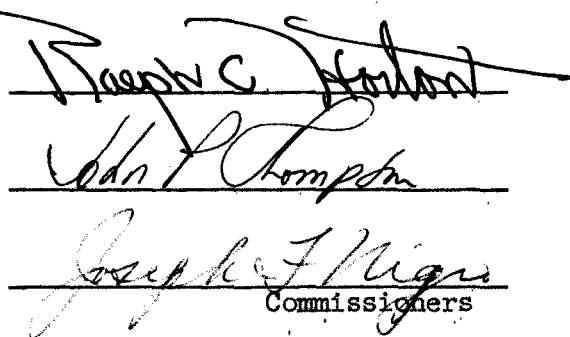 Ralph C. Horton
John P Thompson
Joseph F Nigro
Commissioners